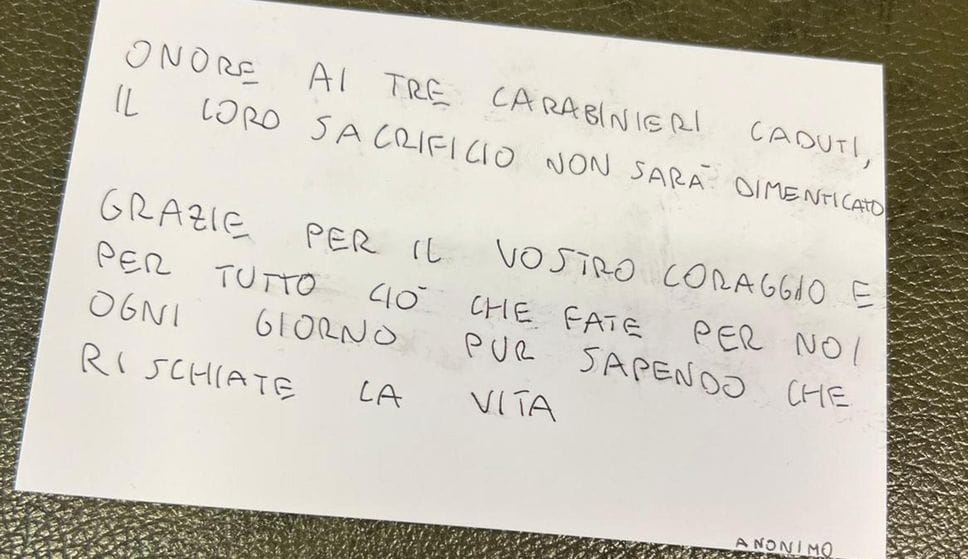 ONORE AI TRE CARABINIERI CADUTI,
IL LORO SACRIFICIO NON SARÀ DIMENTICATO
GRAZIE PER IL VOSTRO CORAGGIO E
PER TUTTO CIÒ CHE FATE PER NOI
OGNI GIORNO PUR SAPENDO CHE
RISCHIATE LA VITA
ANONIMO